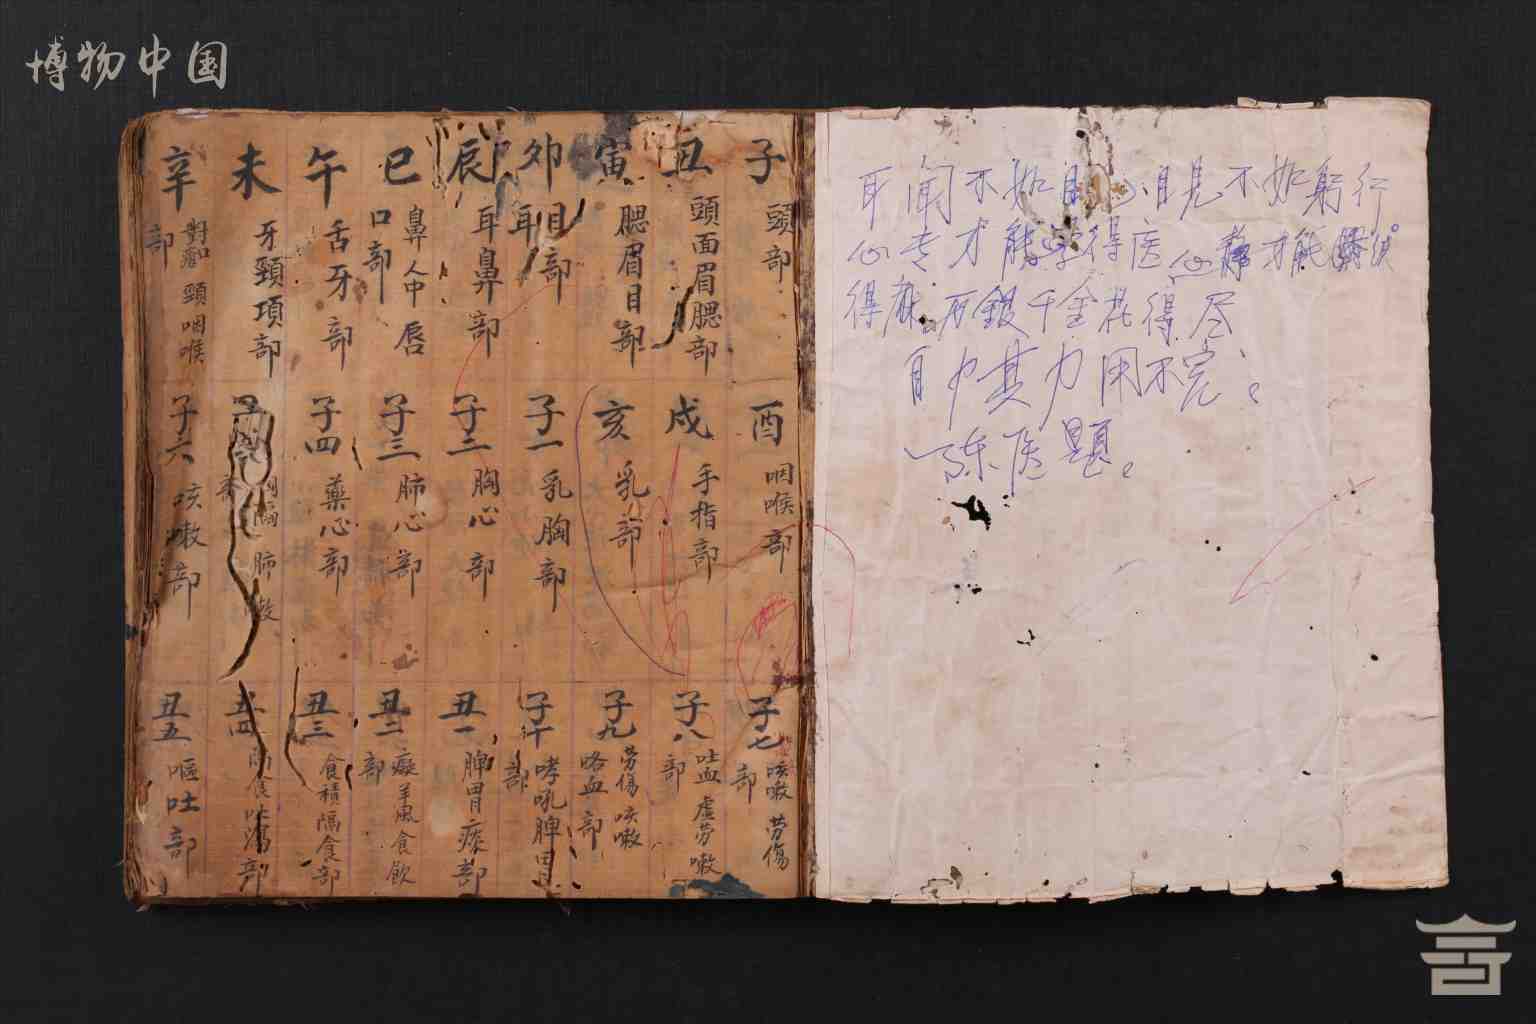 博物中国
耳闻不如目
目见不如躬行
心专才能学得医
心静才能
得
千金花得尽
用不完。
陈医题。
子 頭部
丑 頭面眉腮部
寅 腮眉目部
卯 目耳部
辰 耳鼻部
巳 鼻人中唇口部
午 舌牙部
未 牙頸項部
辛 頸咽喉部
酉 咽喉部
戌 手指部
亥 乳部
子一 乳胸部
子二 胸心部
子三 肺心部
子四 藥心部
肺
子六 咳嗽部
子七 咳嗽劳傷部
子八 吐血虚劳嗽部
子九 劳傷咳嗽咯血部
子十 哮吼脾胃部
丑一 脾胃痰部
丑二 癡羊風食飲部
丑三 食積隔食部
丑四 食吐瀉部
丑五 嘔吐部